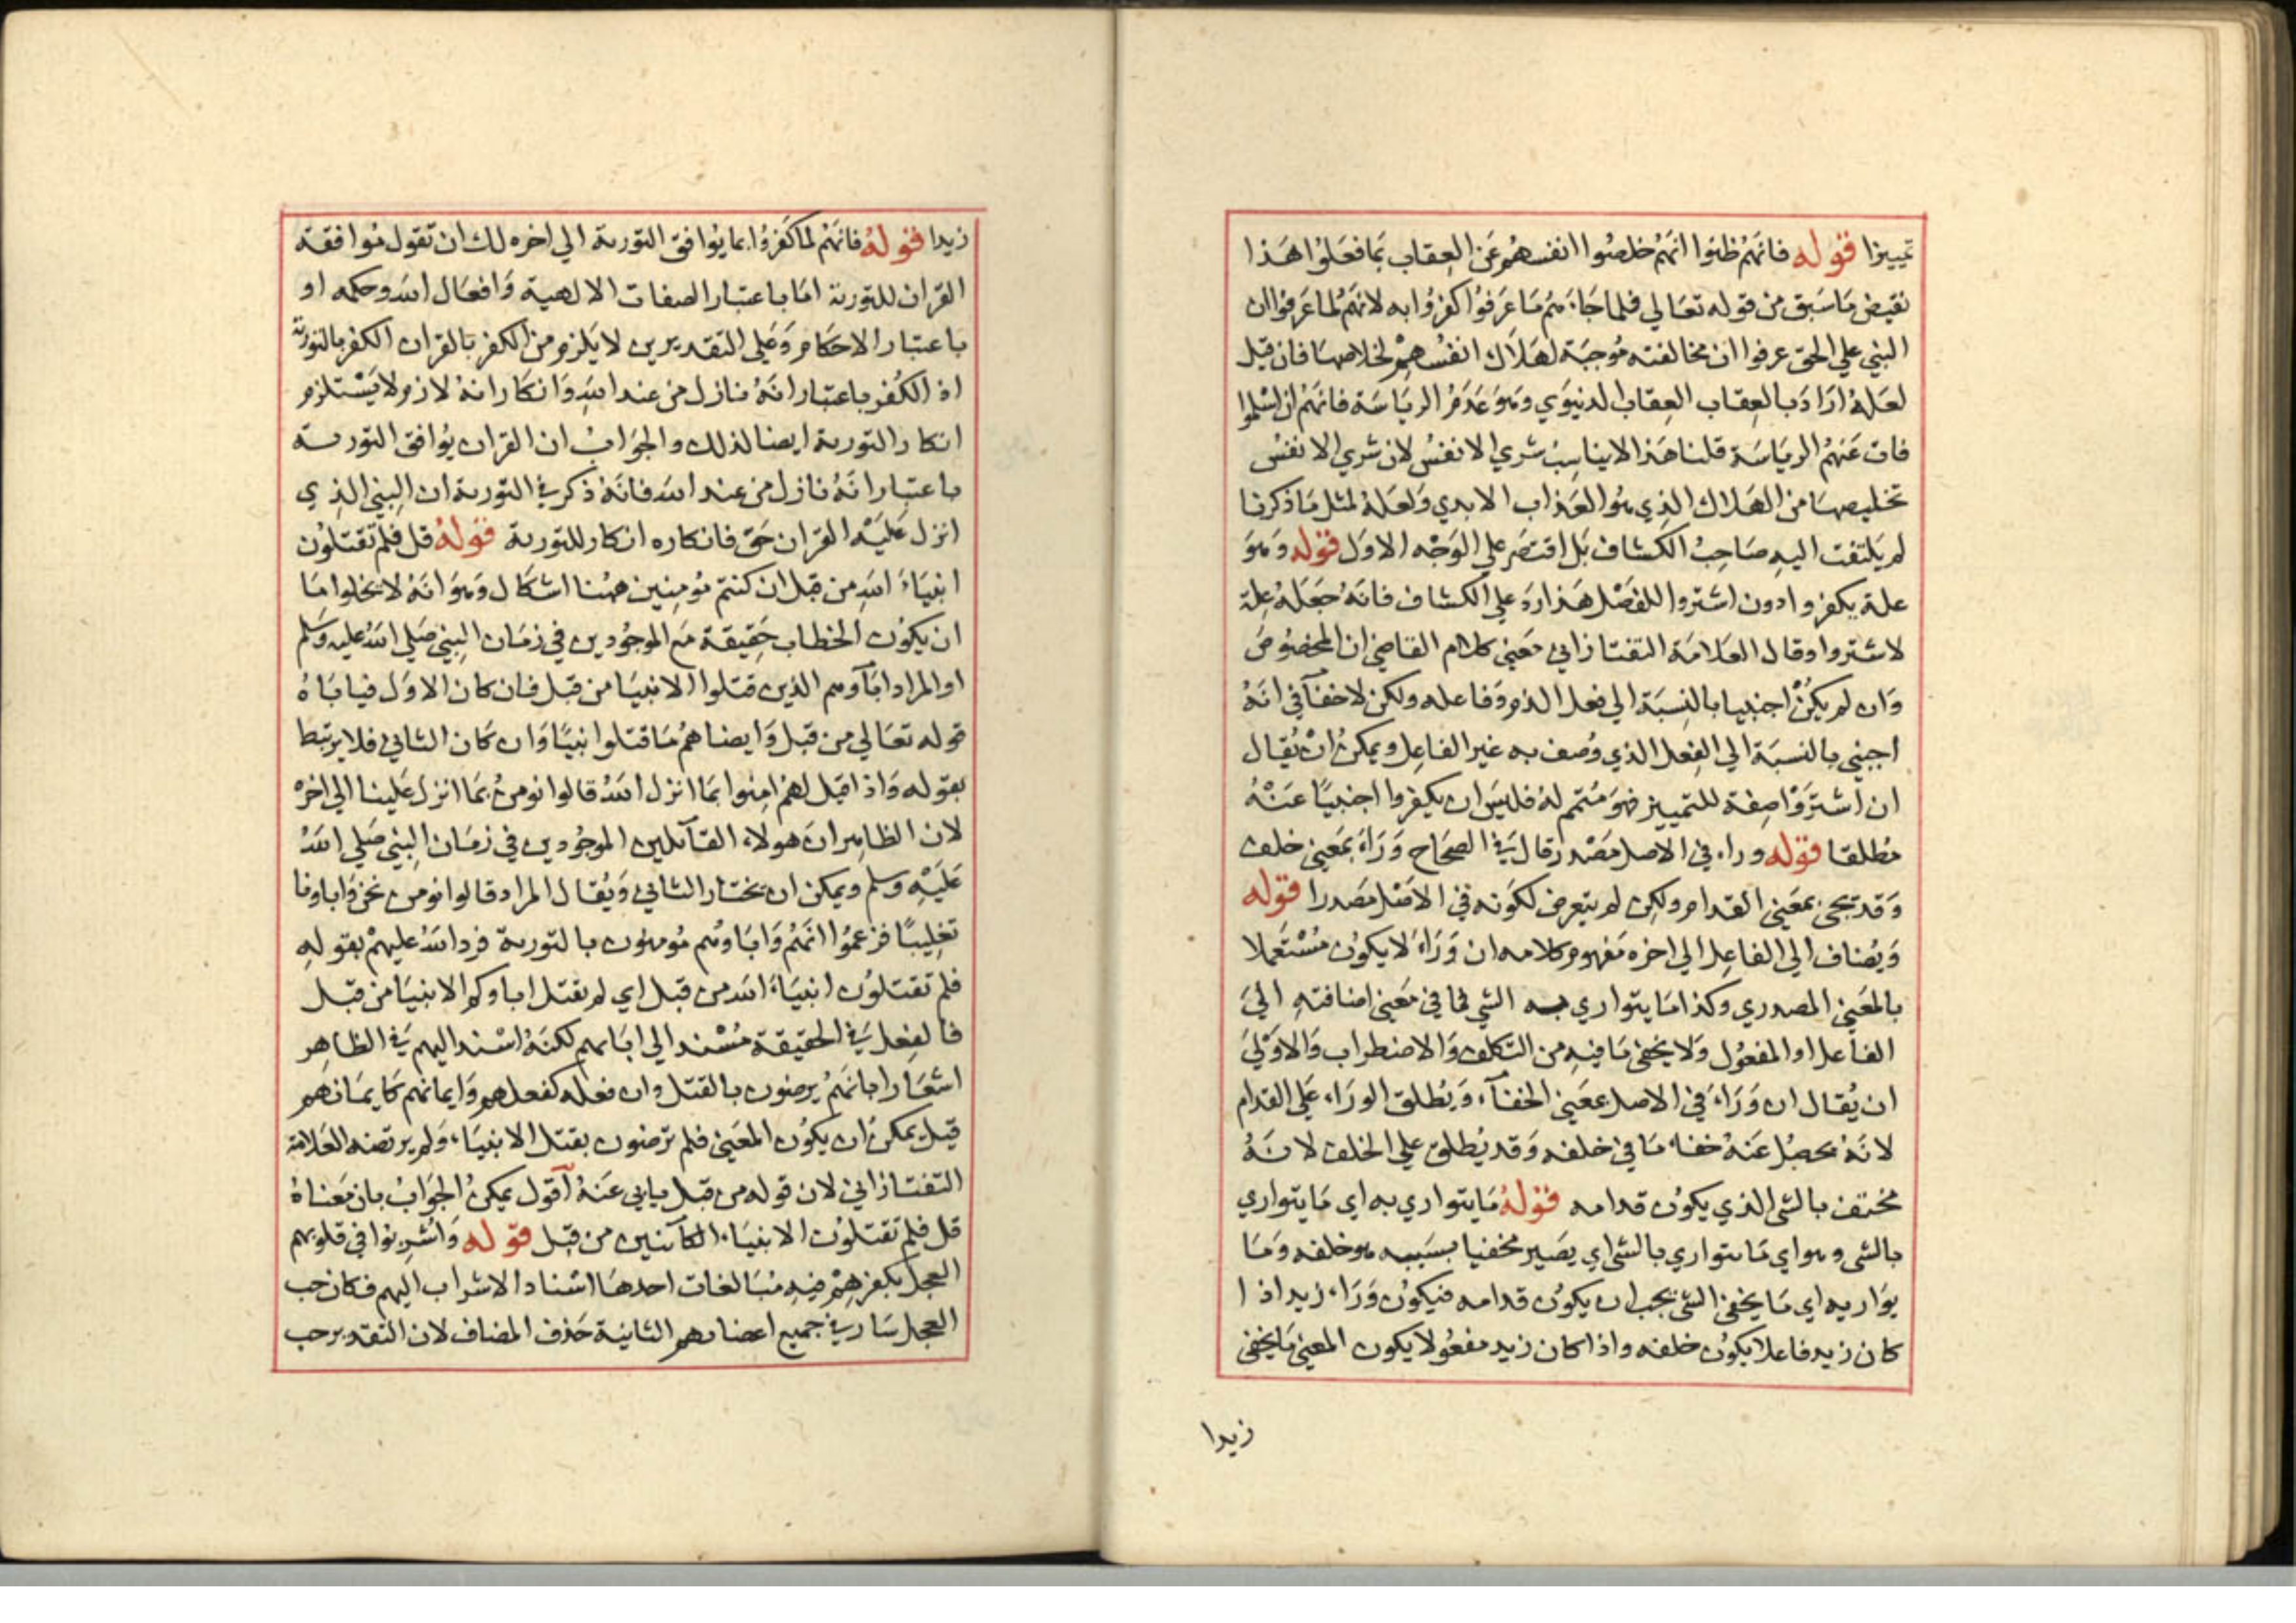 تمييزا قوله فانهم ظنوا انهم خلصوا انفسهم عن العقاب بما فعلوا هذا
نقيض ما سبق من قوله تعالي فلما جاءهم ما عرفوا كفروا به لانهم لما عرفوا ان
النبي علي الحق عرفوا ان مخالفته موجبة لهلاك انفسهم لخلاصها فان قيل
لعله اراد بالعقاب العقاب الدنيوي وهو عدم الرياسة فانهم ان اسلموا
فات عنهم الرياسة قلنا هذا لا يناسب شري الانفس لان شري الانفس
تخليصها من الهلاك الذي هو العذاب الابدي ولعله لمثل ما ذكرنا
لم يلتفت اليه صاحب الكشاف بل اقتصر علي الوجه الاول قوله وهو
علة يكفروا دون اشتروا للفصل هذا رد علي الكشاف فانه جعله علة
لاشتروا وقال العلامة التفتازاني معني كلام القاضي ان المخصوص
وان لم يكن اجنبيا بالنسبة الي فعل الذم وفاعله ولكن لا خفآ في انه
اجنبي بالنسبة الي الفعل الذي وصف به غير الفاعل ويمكن ان يقال
ان اشتروا صفة للتمييز فهو متمم له فليس ان يكفروا اجنبيا عنه
مطلقا قوله وراء في الاصل مصدر قال في الصحاح وراء بمعني خلف
وقد تجي بمعني القدام ولكن لم يتعرض لكونه في الاصل مصدرا قوله
ويضاف الي الفاعل الي اخره مفهوم كلامه ان وراء لا يكون مستعملا
بالمعني المصدري وكذا ما يتواري به الشي فما في معني اضافته الي
الفاعل او المفعول ولا يخفي ما فيه من التكلف والاضطراب والاولي
ان يقال ان وراء في الاصل بمعني الخفآء ويطلق الوراء علي القدام
لانه يحصل عنه خفاء ما في خلفه وقد يطلق علي الخلف لانه
مختف بالشي الذي يكون قدامه قوله ما يتواري به اي ما يتواري
بالشي وهو اي ما يتواري بالشي اي يصير مخفيا بسببه هو خلفه وما
يواريه اي ما يخفي الشي يجب ان يكون قدامه فيكون وراء زيد اذا
كان زيد فاعلا يكون خلفه واذا كان زيد مفعولا يكون المعني ما يخفي
زيدا
زيدا قوله فانهم لما كفروا بما يوافق التورية الي اخره لك ان تقول موافقة
القران للتورية اما باعتبار الصفات الالهية وافعال الله وحكمه او
باعتبار الاحكام وعلي التقديرين لا يلزم من الكفر بالقران الكفر بالتورية
اذ الكفر باعتبار انه نازل من عند الله وانكار انه لازم ولا يستلزم
انكار التورية ايضا لذلك والجواب ان القران يوافق التورية
باعتبار انه نازل من عند الله فانه ذكر في التورية ان النبي الذي
انزل عليه القران حق فانكاره انكار للتورية قوله قل فلم تقتلون
انبياء الله من قبل ان كنتم مومنين ههنا اشكال وهو انه لا يخلوا ما
ان يكون الخطاب حقيقة مع الموجودين في زمان النبي صلي الله عليه وسلم
او المراد اباؤهم الذين قتلوا الانبيا من قبل فان كان الاول فياباه
قوله تعالي من قبل وايضا هم ما قتلوا نبيا وان كان الثاني فلا يرتبط
بقوله واذا قيل لهم امنوا بما انزل الله قالوا نومن بما انزل علينا الي اخره
لان الظاهر ان هولاء القآئلين الموجودين في زمان النبي صلي الله
عليه وسلم ويمكن ان يختار الثاني ويقال المراد قالوا نومن نحن واباونا
تغليبا فزعموا انهم واباوهم مومنون بالتورية فرد الله عليهم بقوله
فلم تقتلون انبياء الله من قبل اي لم يقتل اباوكم الانبيا من قبل
فالفعل في الحقيقة مسند الي ابائهم لكنه اسند اليهم في الظاهر
اشعارا بانهم يرضون بالقتل وان فعله كفعلهم وايمانهم كايمانهم
قيل يمكن ان يكون المعني فلم ترضون بقتل الانبياء ولم يرتضه العلامة
التفتازاني لان قوله من قبل يابي عنه آقول يمكن الجواب بان معناه
قل فلم تقتلون الانبياء الكآئنين من قبل قوله واشربوا في قلوبهم
العجل بكفرهم فيه مبالغات احدها اسناد الاشراب اليهم فكان حب
العجل سار في جميع اعضائهم الثانية حذف المضاف لان التقدير حب